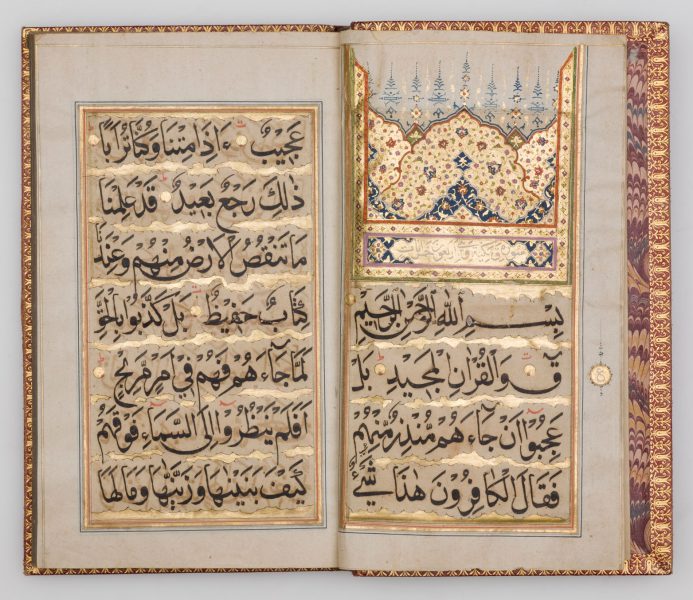 بسم الله الرحمن الرحيم
ق والقران المجيد بل
عجبوا ان جاءهم منذر منهم
فقال الكافرون هذا شئ
عجيب ءاذا متنا وكنا ترابا
ذلك رجع بعيد قد علمنا
ما تنقص الارض منهم وعند
كتاب حفيظ بل كذبوا بالحق
لما جاءهم فهم في امر مريج
افلم ينظروا الى السماء فوقهم
كيف بنيناها وزيناها وما لها